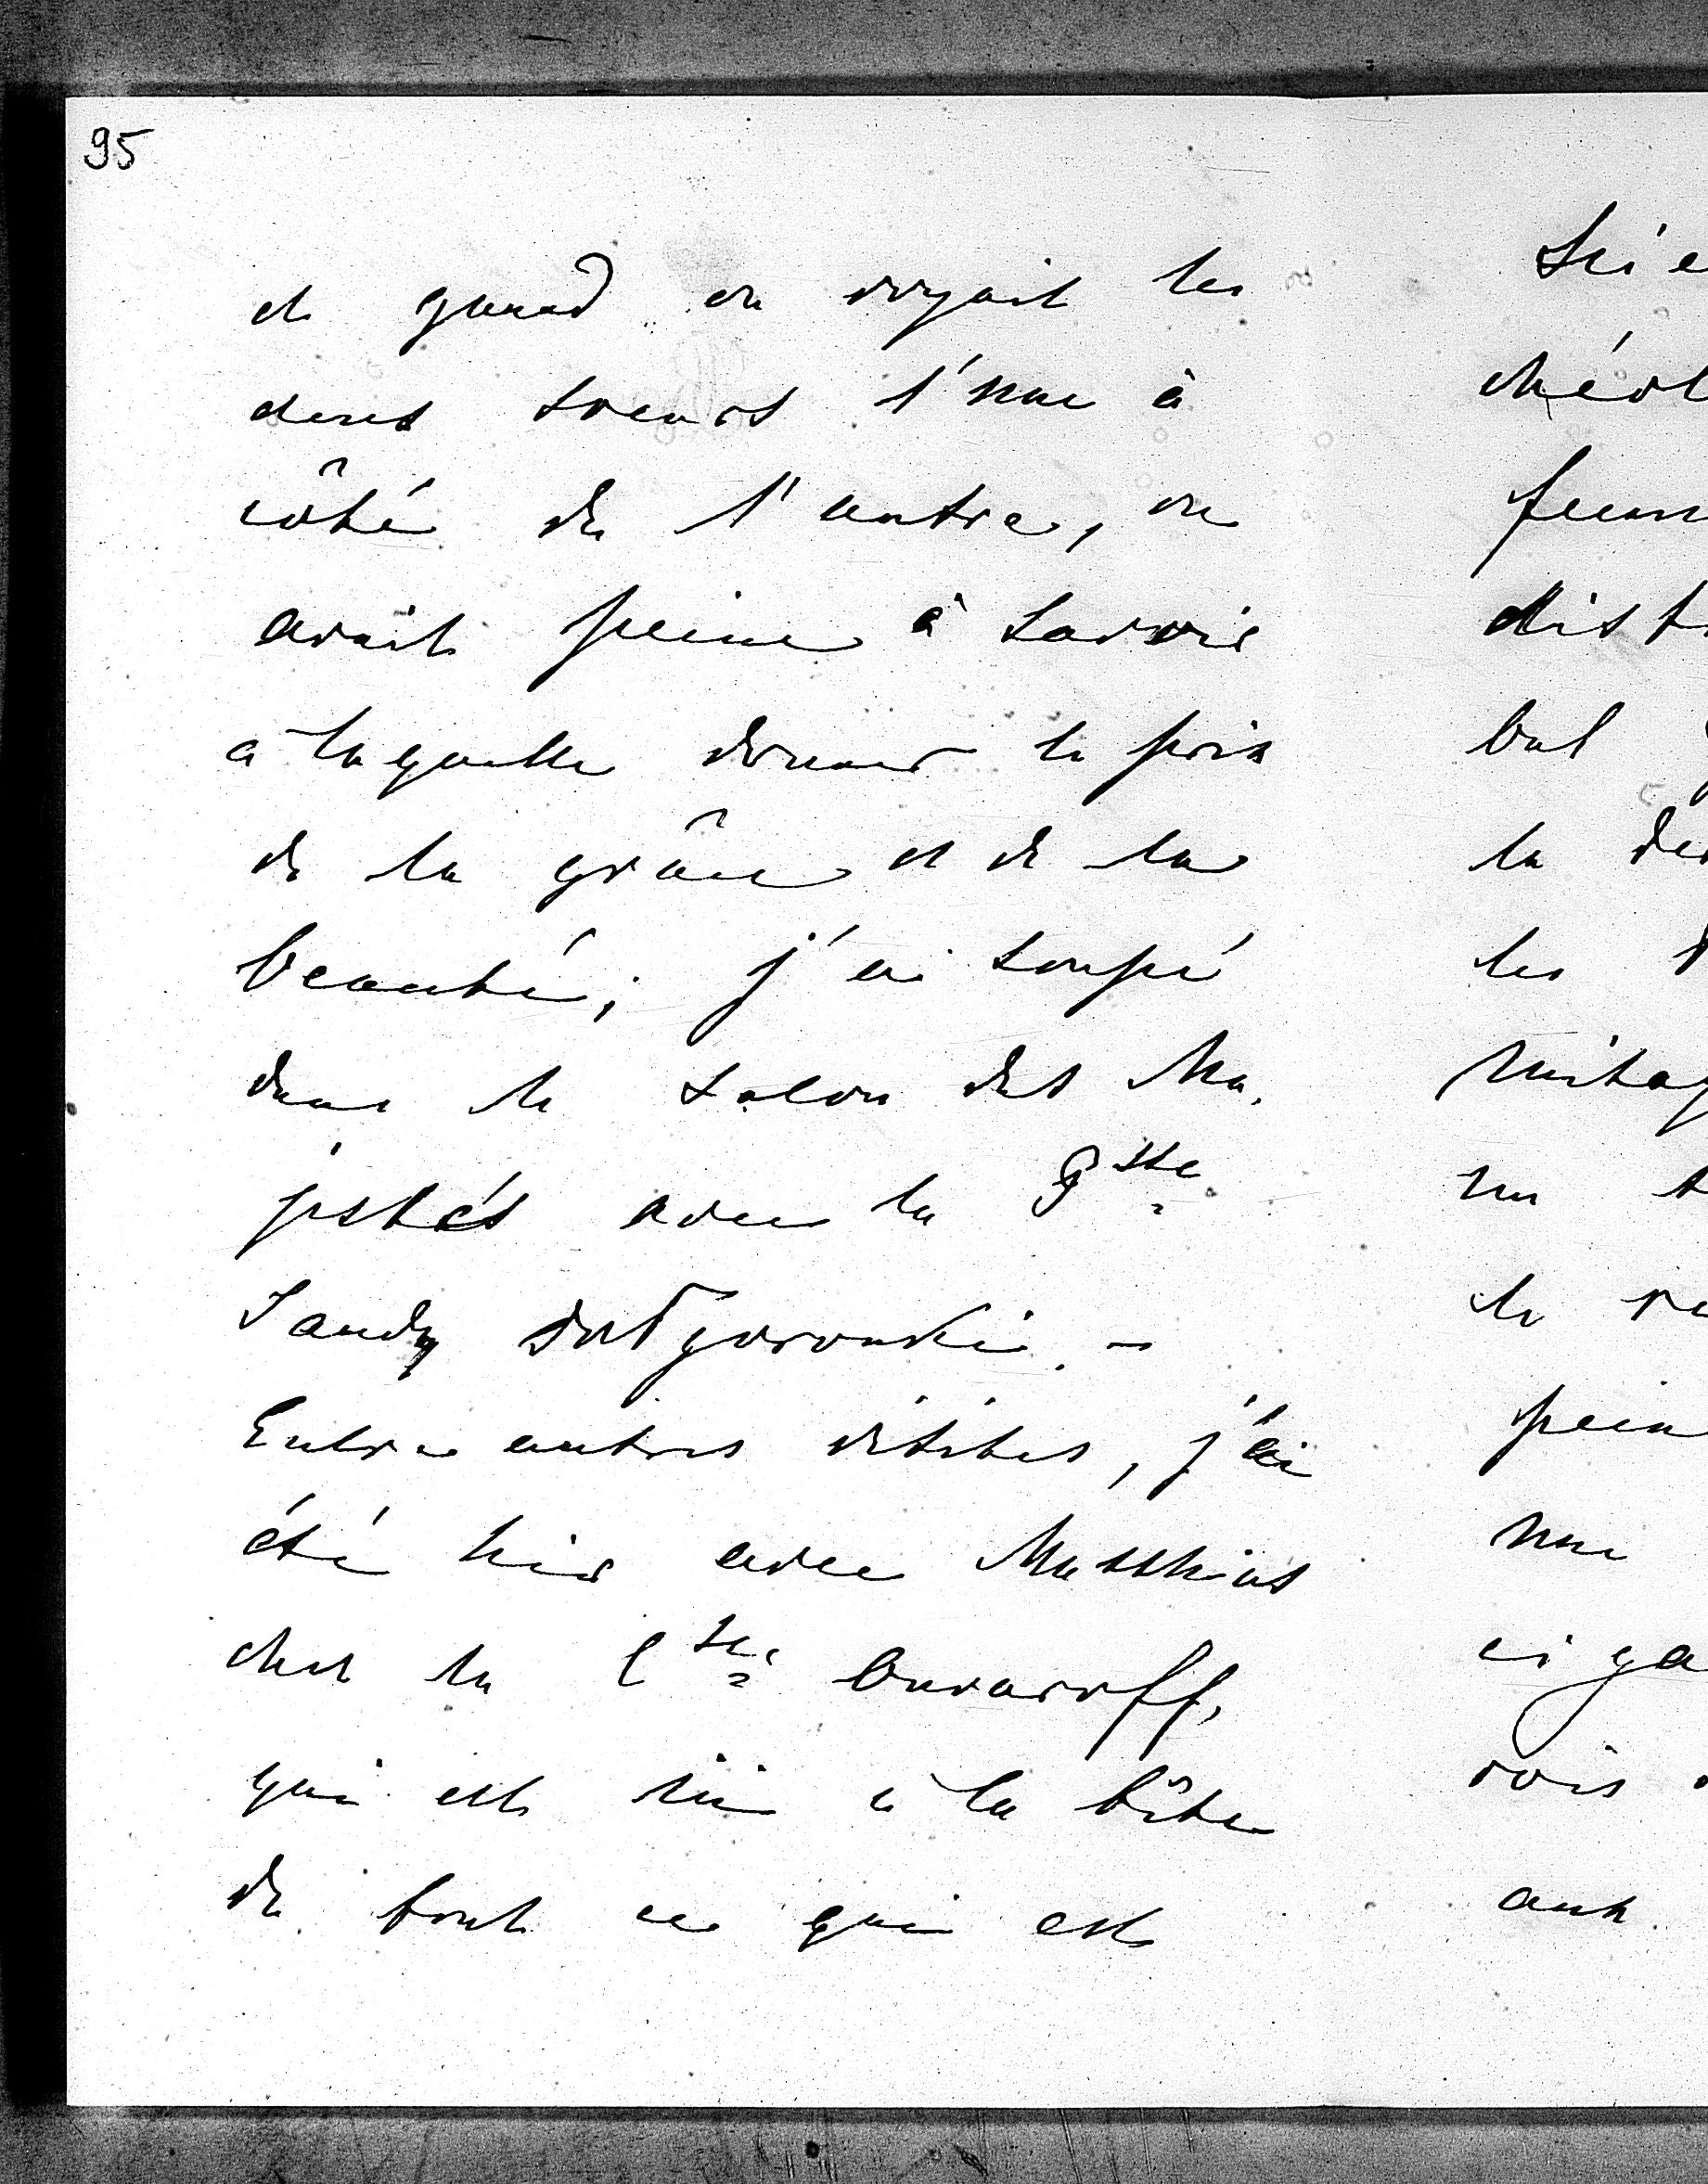 95
et quand on voyait les
deux soeurs l'une à
côté de l'autre, on
avait peine à savoir
à laquelle donner le prix
de la grâce et de la
beauté; j'ai soupé
dans le salon des Ma-
jestés avec la Psse
Sandy Dolgorouki. –
Entre autres visites, j'ai
été hier avec Matthias
chez la Csse Ouvaroff,
qui est ici à la tête
de tout ce qui est